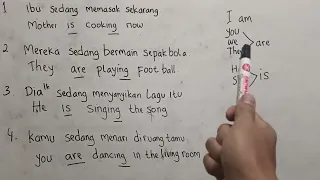 1 Ibu sedang memasak sekarang
Mother is cooking now
2 Mereka sedang bermain sepak bola
They are playing Football
3. Dia lk sedang menyanyikan lagu itu
He is Singing the Song
4. Kamu sedang menari diruang tamu
you are dancing in the living room
I am
you
are
The
are
H
S
is